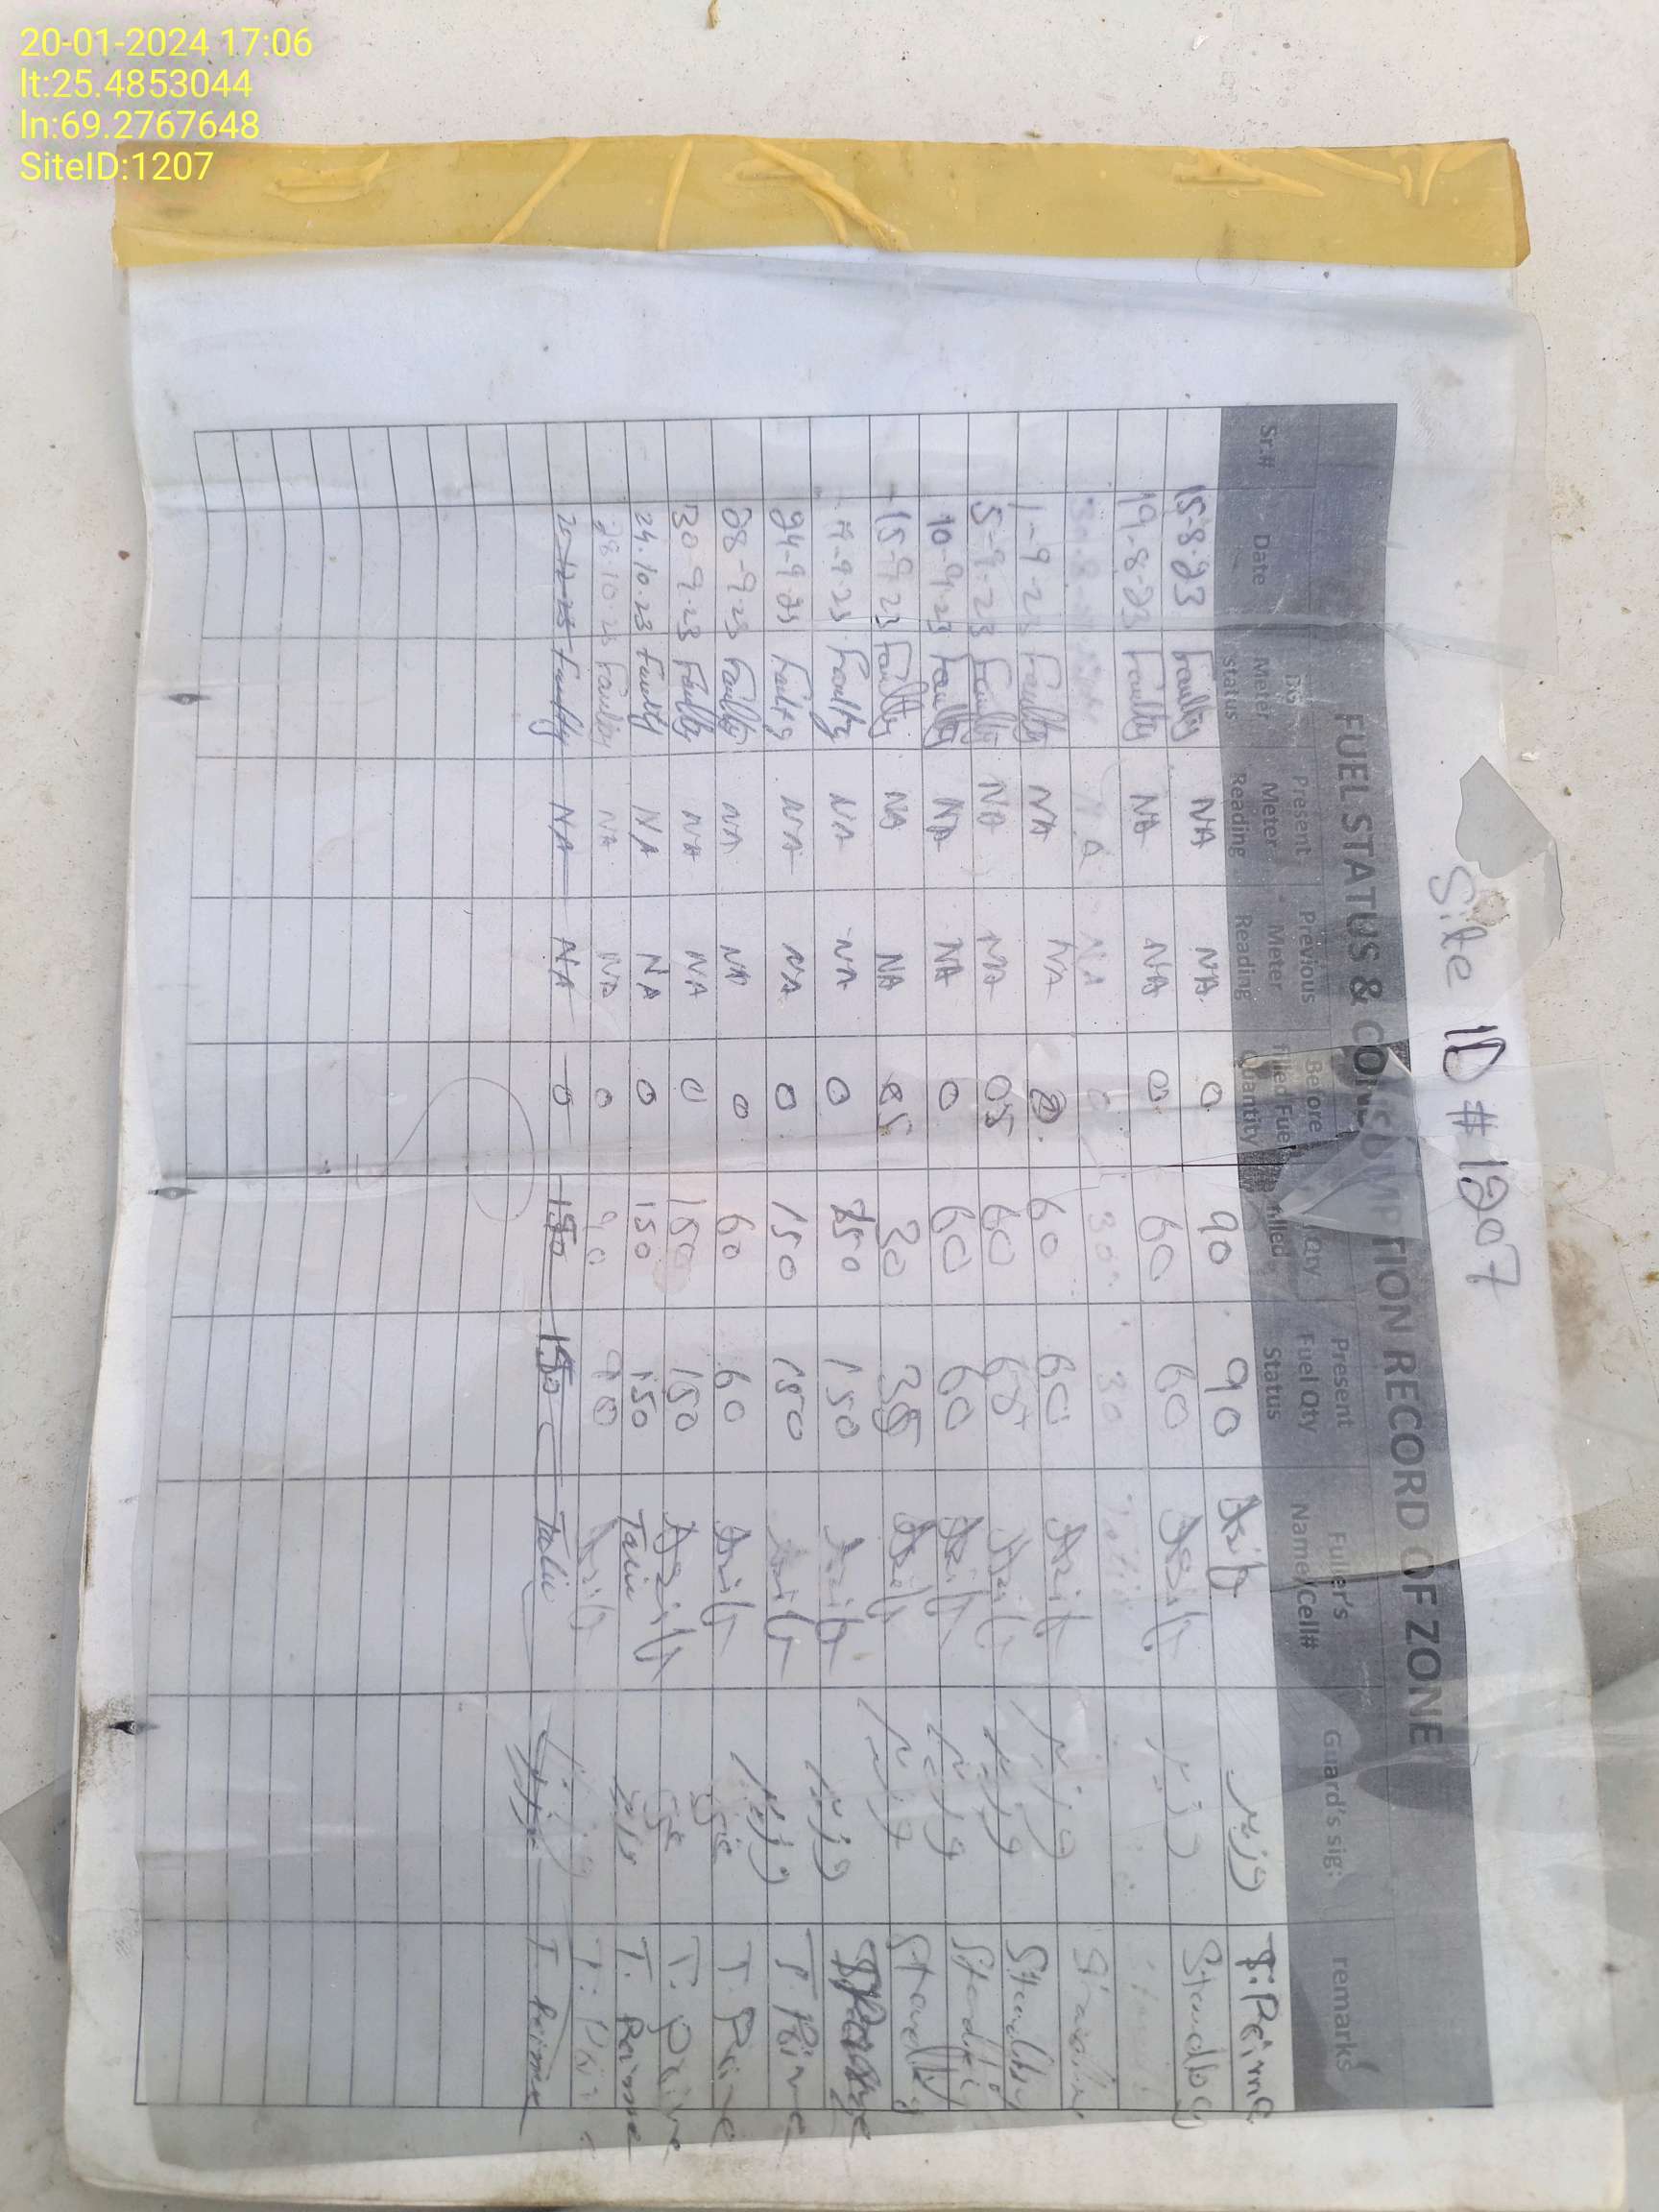 20-01-2024 17:06
lt:25.4853044
ln:69.2767648
SiteID:1207
Site ID # 1207
FUEL STATUS & CONSUMPTION RECORD OF ZONE
Sr.# Date DG Meter status Present Meter Reading Previous Meter Reading Before filled Fuel Quantity Qty filled Present Fuel Qty Status Fuller's Name/Cell# Guard's sig: remarks
15-8-23 Faulty NA NA 0 90 90 Asif T.Prime
19-8-23 Faulty NA NA 0 60 60 Asif Standby
NA 30 30
1-9-23 Faulty NA NA 0 60 60 Asif Standby
5-9-23 Faulty NA NA 05 60 65 Asif Standby
10-9-23 Faulty NA NA 0 60 60 Asif Standby
15-9-23 Faulty NA NA 05 30 35 Asif Standby
Faulty NA NA 0 150 150 Asif
24-9-23 Faulty NA NA 0 150 150 Asif T.Prime
28-9-23 Faulty NA NA 0 60 60 Asif T.Prime
30-9-23 Faulty NA NA 0 150 150 Asif T.Prime
24.10.23 Faulty NA NA 0 150 150 T.Prime
28.10.23 Faulty NA NA 0 90 90 Asif T.Prime
Faulty NA NA 0 150 150 T.Prime